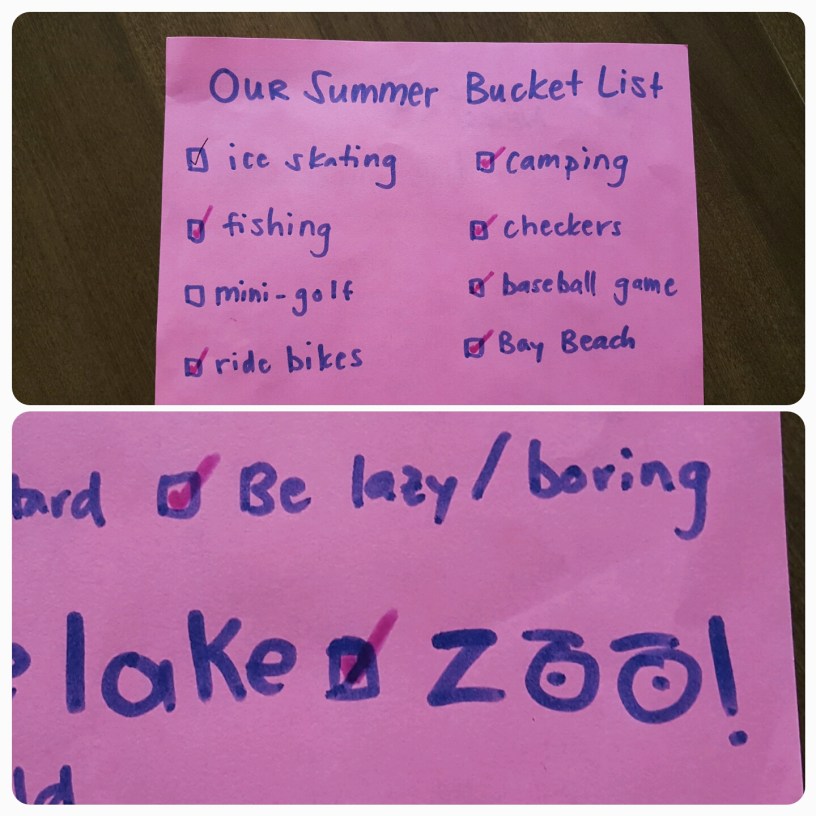 Our Summer Bucket List
ice skating camping
fishing checkers
mini-golf baseball game
ride bikes Bay Beach
Be lazy/boring
lake Zoo!